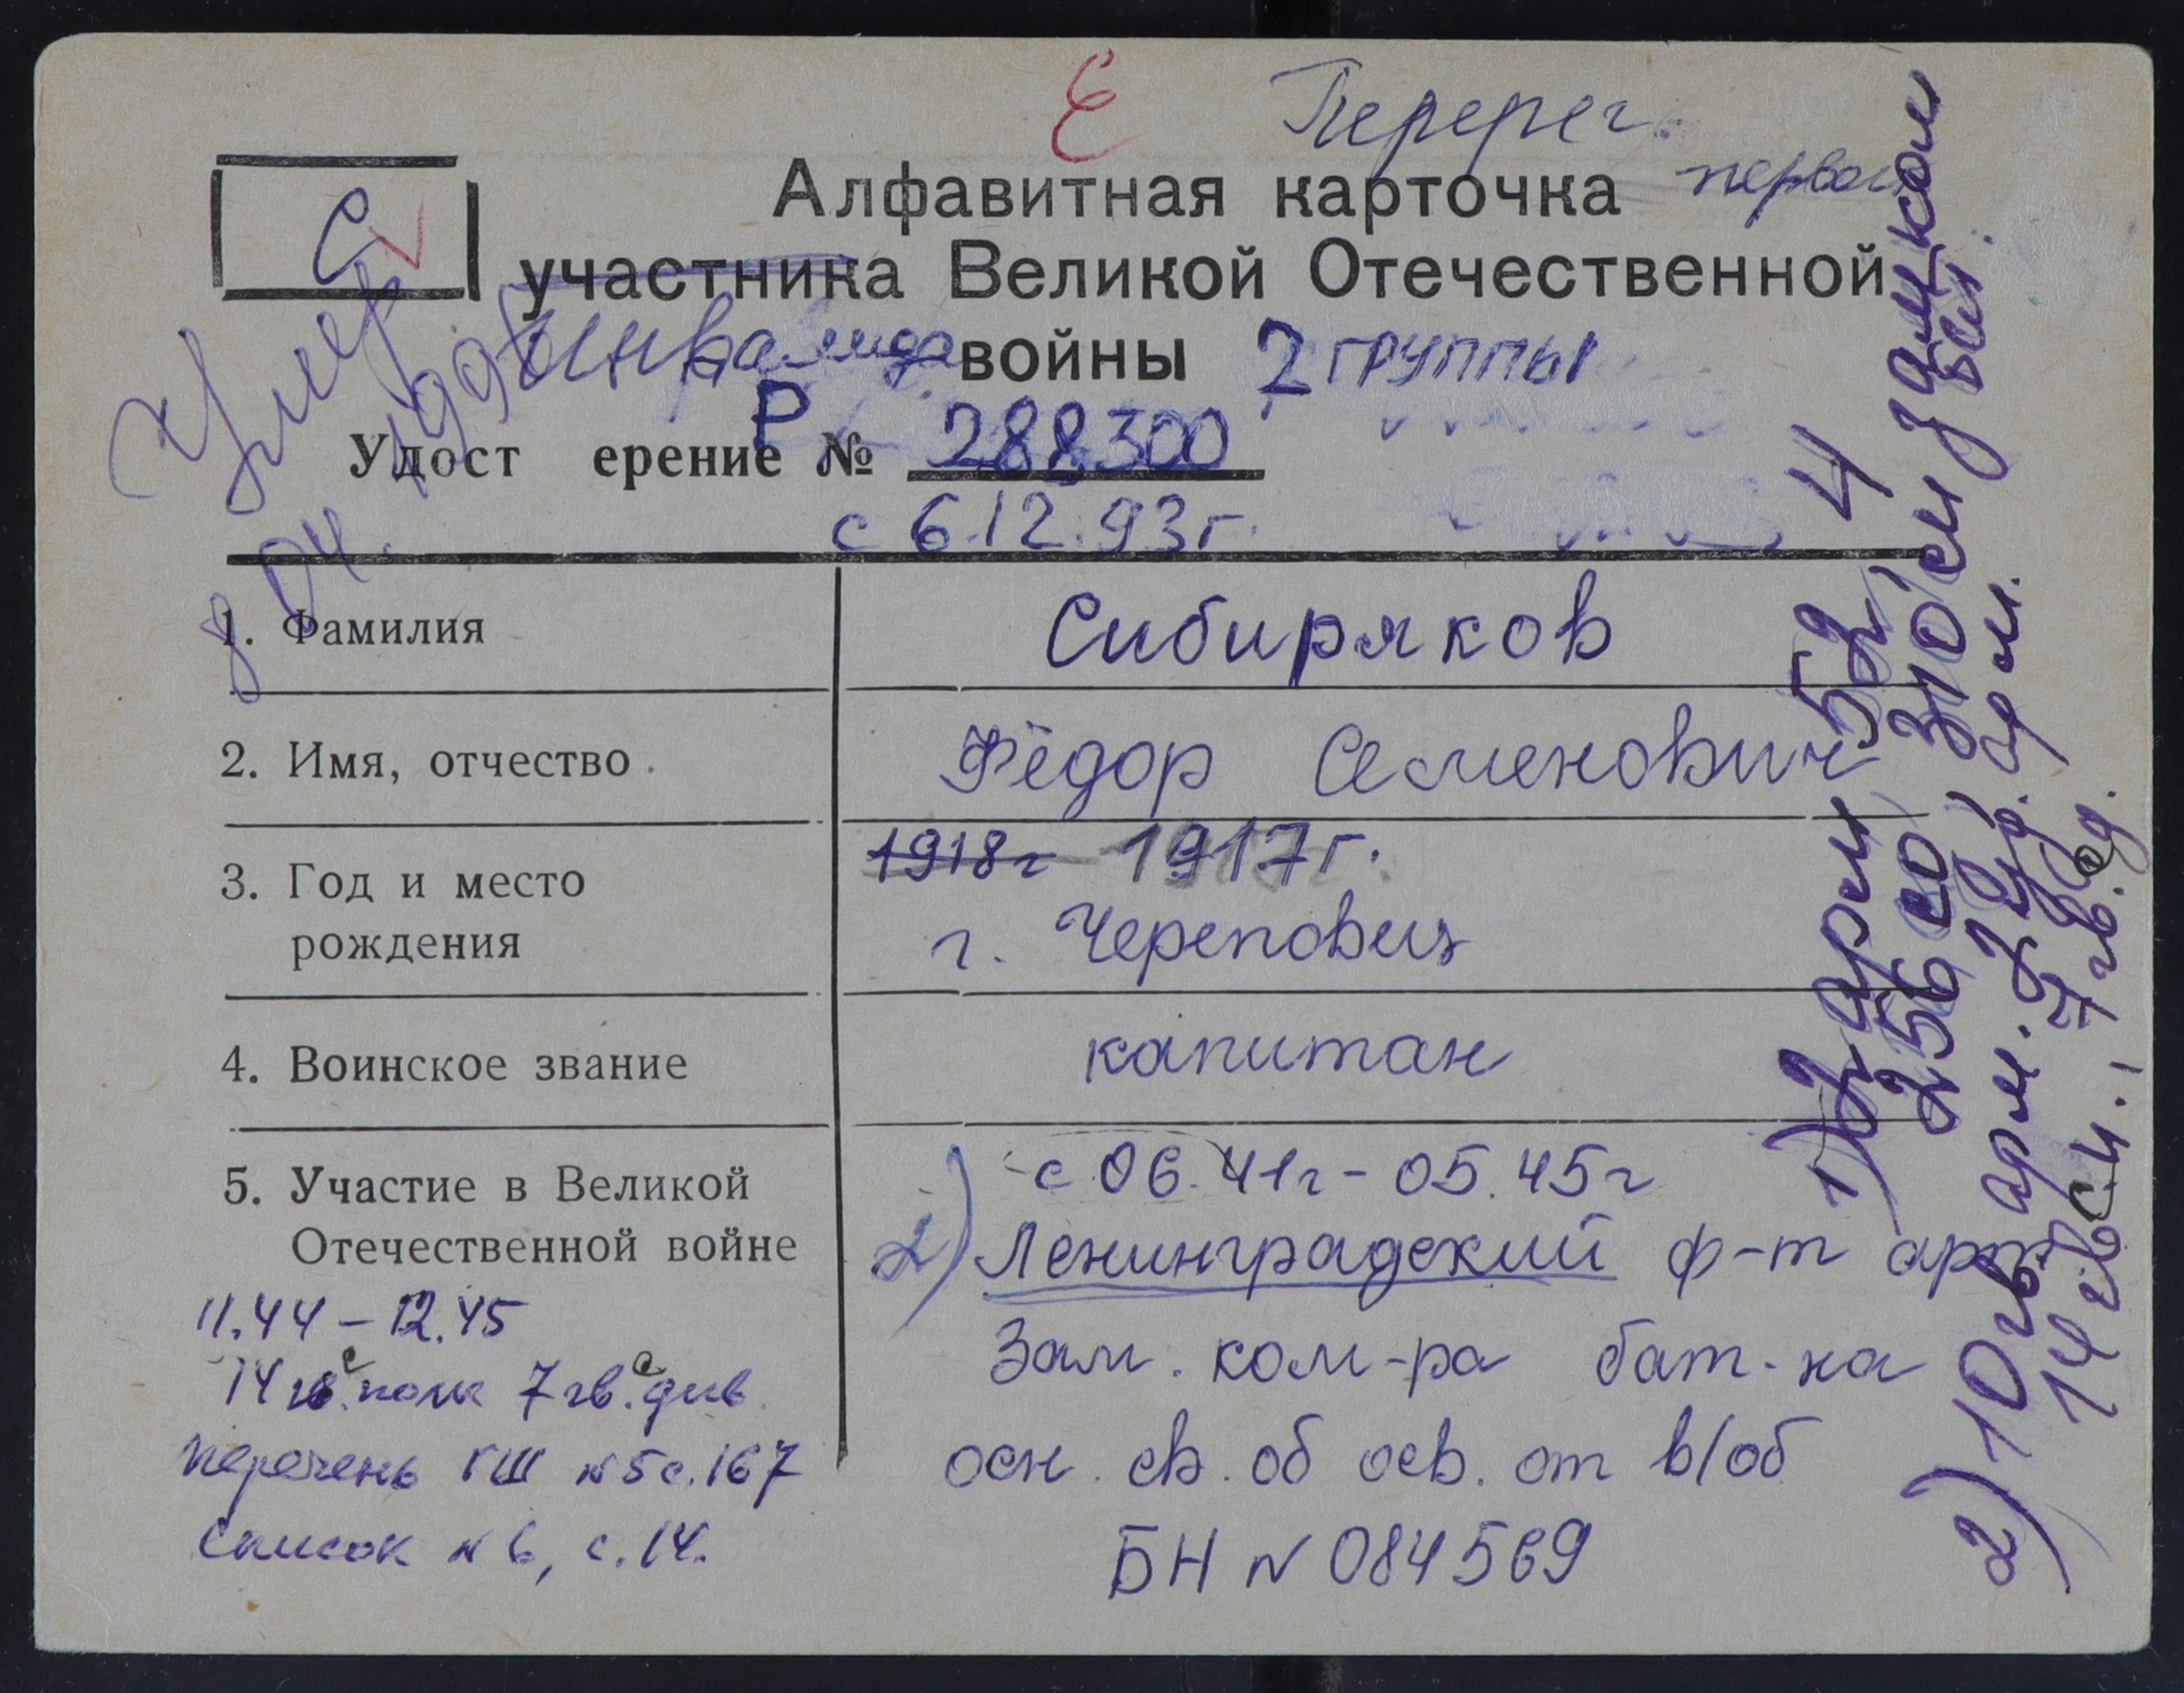 Е Перерег.
Алфавитная карточка
С
участника Великой Отечественной
инвалида войны 2 группы
Р
Удост ерение № 288300
с 6.12.93г.
Умер
8 04. 1998
1. Фамилия Сибиряков
2. Имя, отчество Фёдор Семенович
3. Год и место рождения 1918г 1917г.
г. Череповец
4. Воинское звание капитан
5. Участие в Великой Отечественной войне с 06.41г - 05.45г
2) Ленинградский ф-т арт
Зам. ком-ра бат-на
осн. св. об осв. от в/об
БН N 084569
11.44 - 12.45
14 гв. с полк 7 гв. с див.
перечень ГШ N 5 с. 167
Список N 6, с. 14.
1) 2 арм 52 4
256 сд 310 сп зам ком
2) 10 гв арм. 2 уд. арм.
14 гв сп. 7 гв. сд.